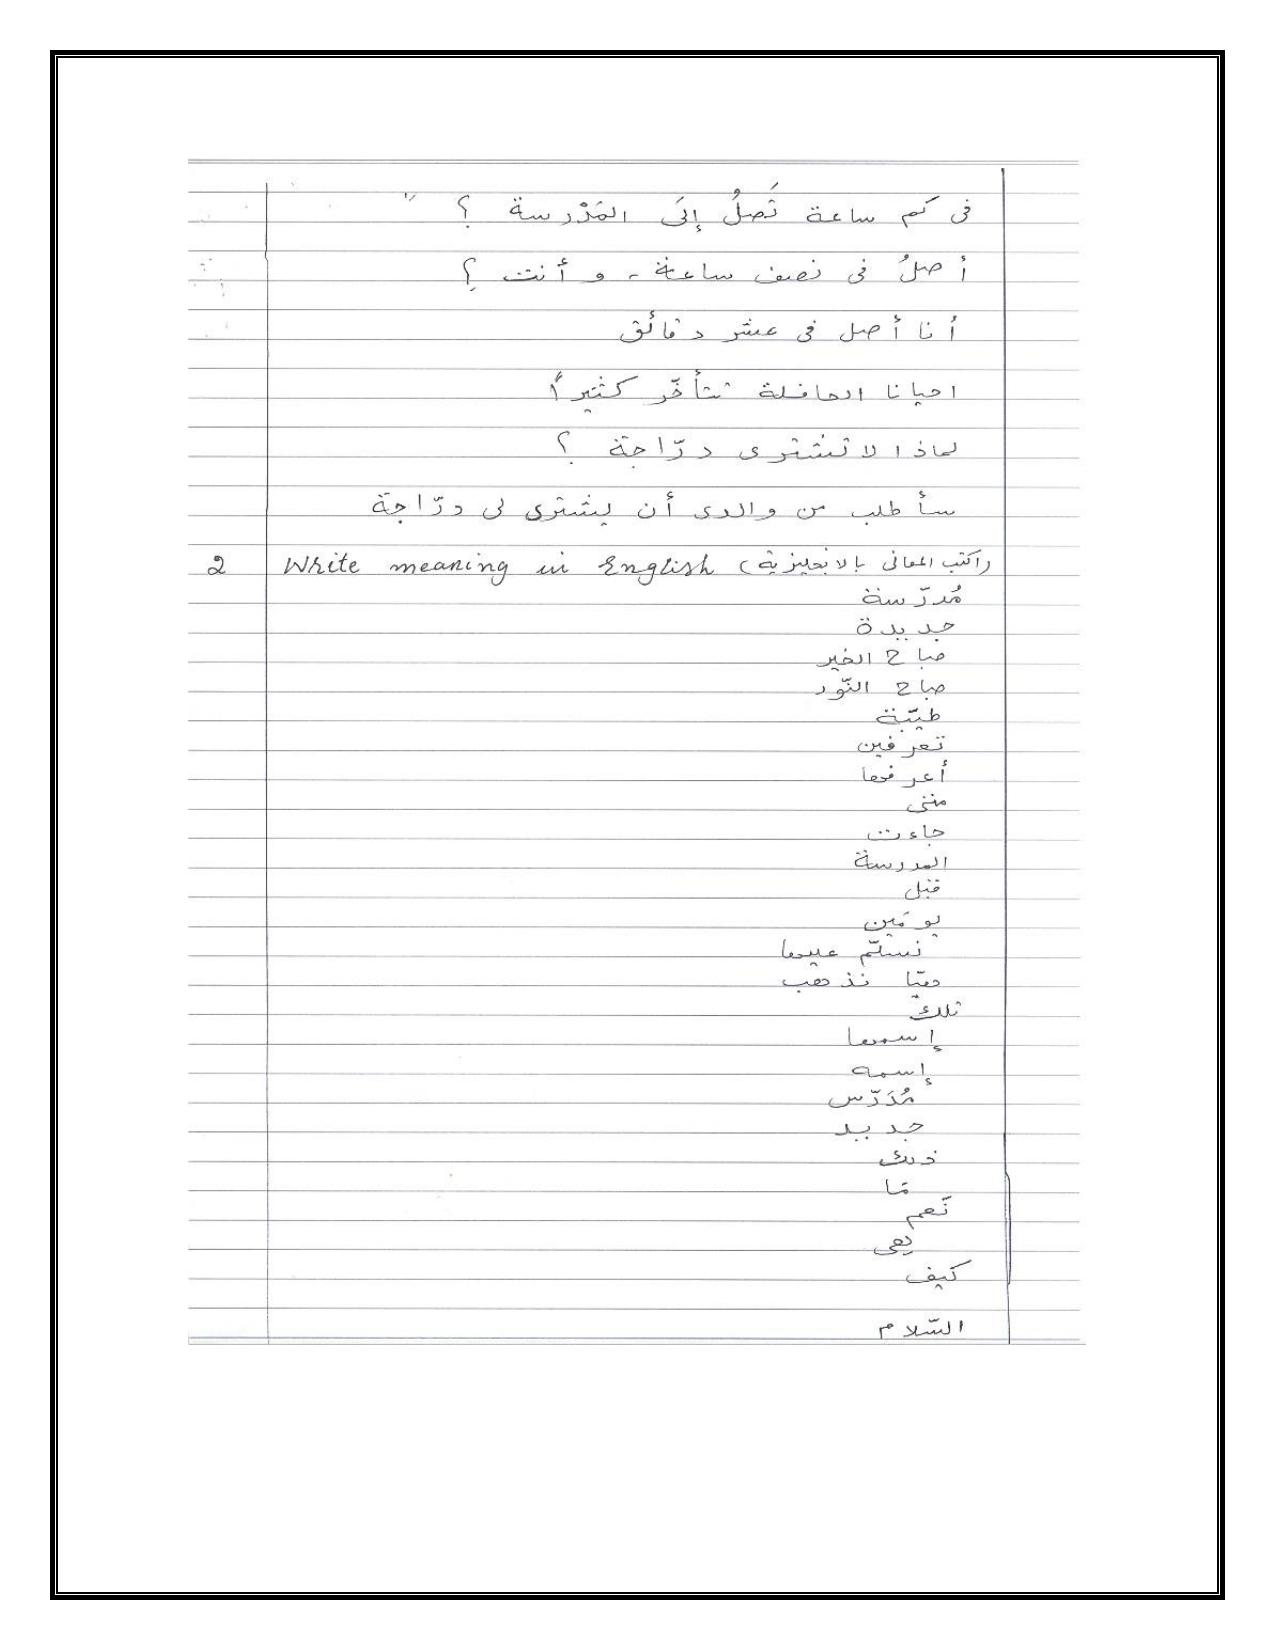 فى كم ساعة تَصلُ إلَى المَدْرسة ؟
أصلُ فى نصف ساعة - و أنت ؟
أنا أصل فى عشر دقائق
احيانا الحافلة تتأخّر كثيراً
لماذا لا تشترى درّاجة ؟
سأطلب من والدى أن يشترى لى درّاجة
2 Write meaning in English (اكتب المعانى بالانجليزية)
مُدرّسة
جديدة
صباح الخير
صباح النّور
طيّبة
تعرفين
أعرفها
متى
جاءت
المدرسة
قبل
يومَين
نسلّم عليها
هيّا نذهب
تلك
إسمها
إسمه
مُدَرّس
جديد
ذلك
مَا
نَعم
كيف
السّلام